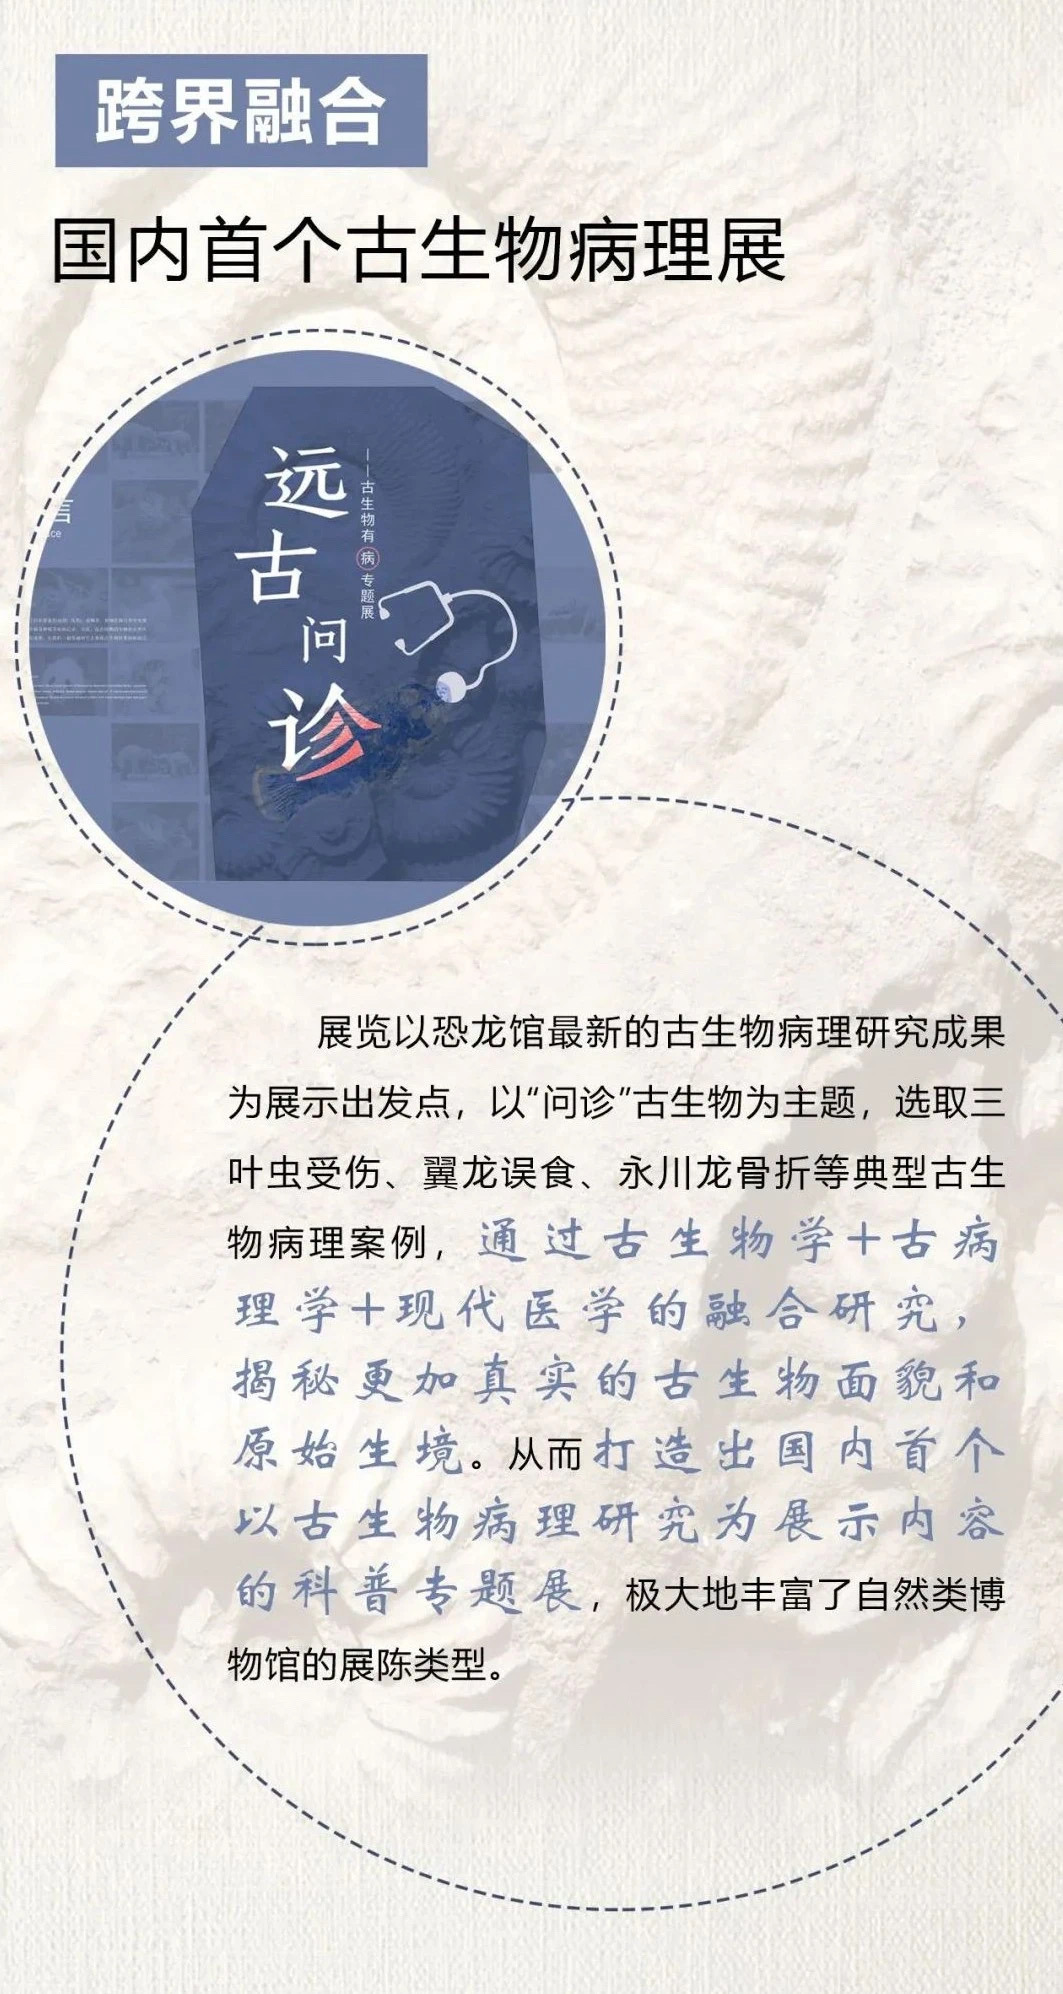 跨界融合
国内首个古生物病理展
远古问诊
——古生物有病专题展
言
ce
展览以恐龙馆最新的古生物病理研究成果
为展示出发点，以“问诊”古生物为主题，选取三
叶虫受伤、翼龙误食、永川龙骨折等典型古生
物病理案例，通过古生物学+古病
理学+现代医学的融合研究，
揭秘更加真实的古生物面貌和
原始生境。从而打造出国内首个
以古生物病理研究为展示内容
的科普专题展，极大地丰富了自然类博
物馆的展陈类型。